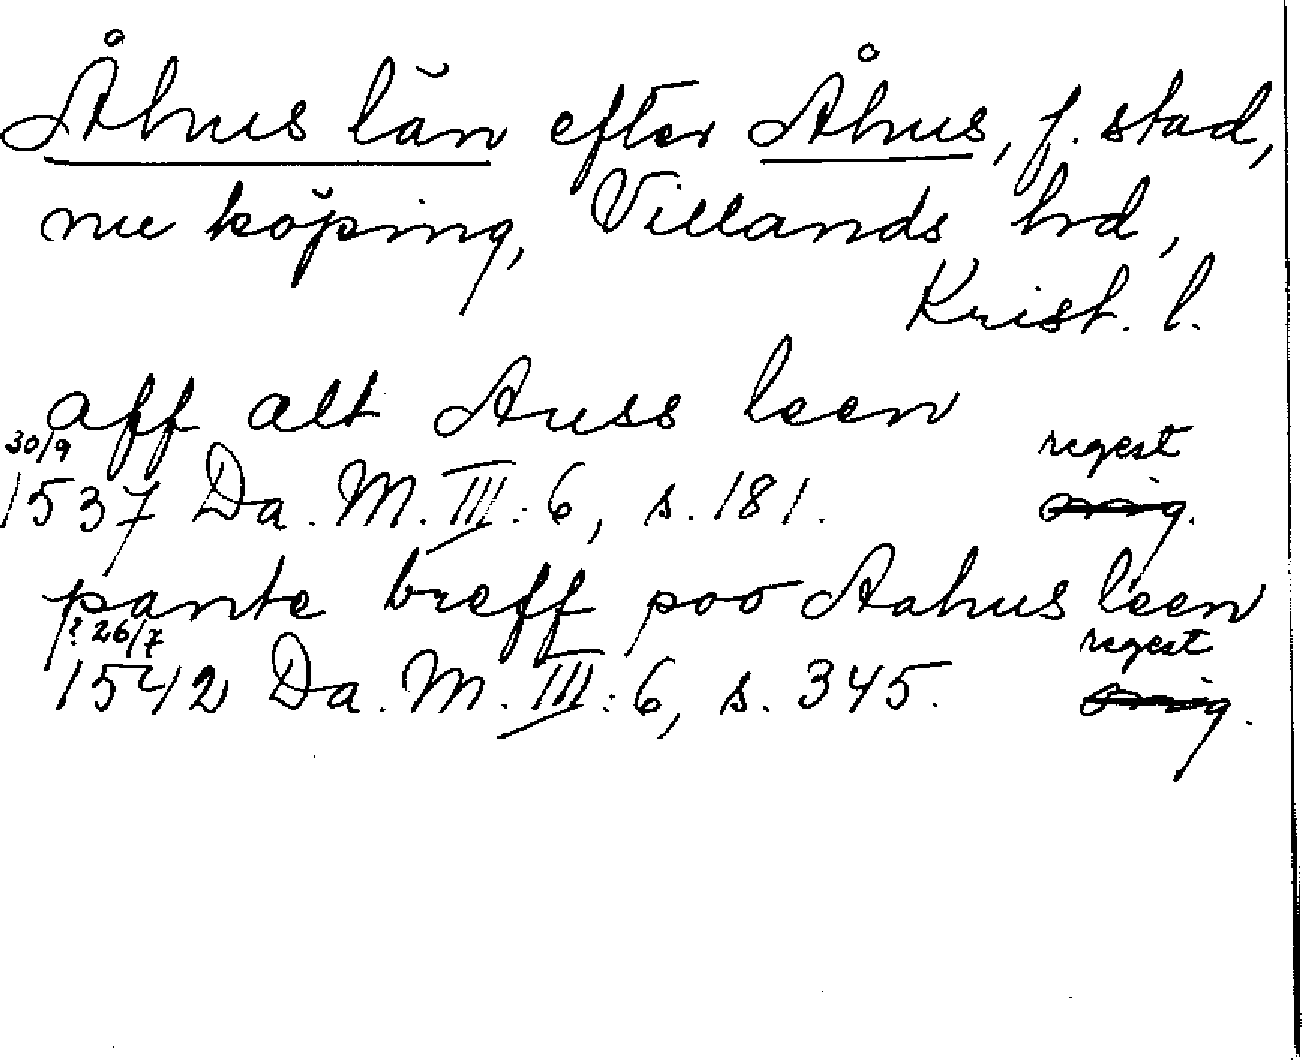 Åhus län efter Åhus, f. stad,
nu köping, Villands hd,
Krist. l.
aff alt Auss leen
30/9 regest
1537 Da. M. III: 6, s. 181. orig.
pante breff poo Aahus leen
? 26/7 regest
1542 Da. M. III: 6, s. 345. orig.